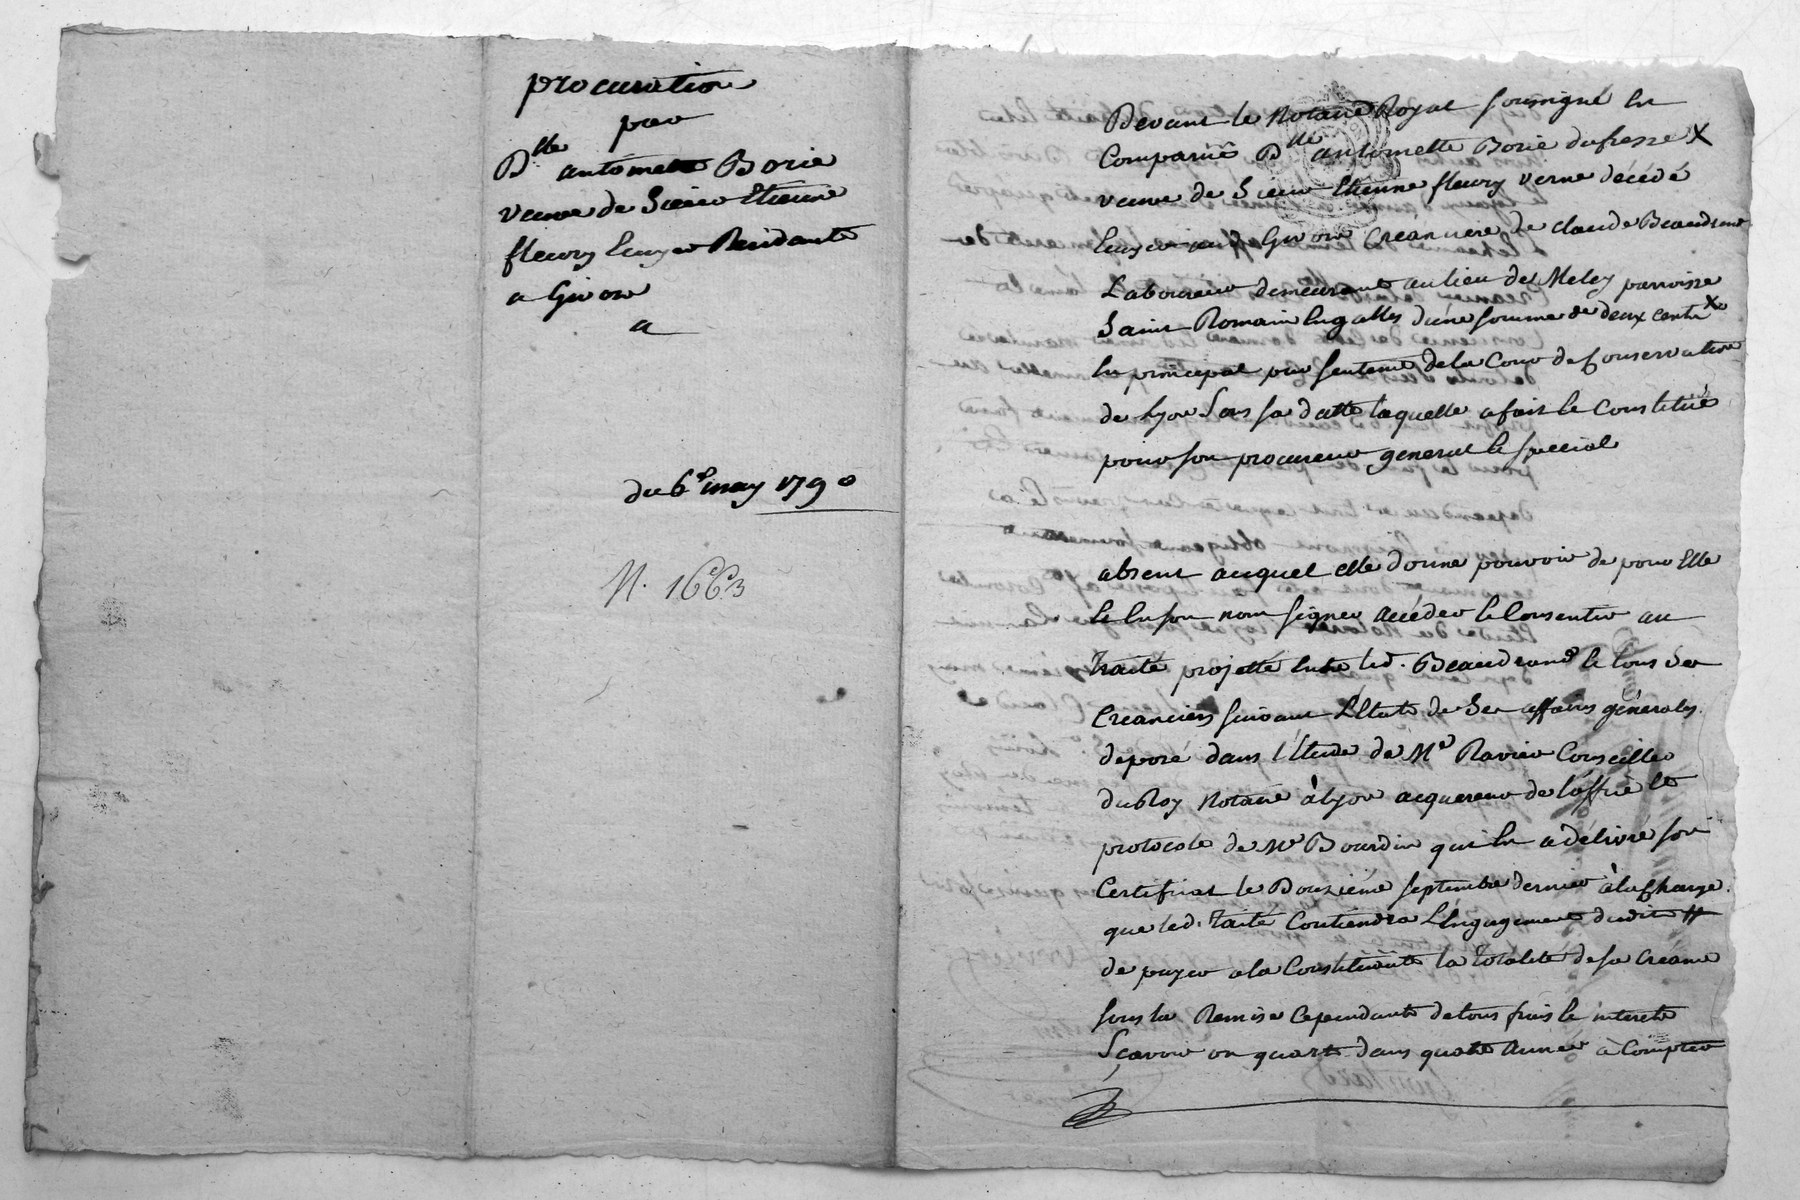 procuration
par
Dlle antoinette Borie
veuve de Sieur Etienne
fleury Ecuyer Residante
a Givors
a
du 6e may 1790
N. 1663
Devant le Notaire Royal soussigné En
Comparüe Dlle antoinette Borie dufresse X
veuve de Sieur Etienne fleury verne décédé
Ecuyer au d Givors Creanciere de claude Beaudrand
Laboureur demeurant au lieu de Meley parroisse
Saint Romain Engalles d'une somme de deux cents Xx
En principal par sentence de la Cour de Conservation
de Lyon Sous sa datte laquelle a fait & Constitué
pour son procureur general & special
absent auquel elle donne pouvoir de pour Elle
& En son nom signer accéder & Consentir au
Traité projetté Entre led. Beaudrand & tous Ses
Creanciers suivant L'Etat de Ses affaires générales
deposé dans l'Etude de Me Ravier Conseiller
du Roy Notaire à Lyon acquereur de l'office &
protocole de Me Bourdin qui En a délivré son
Certificat le Douzième septembre dernier à la Charge
que led. Traité Contiendra L'Engagement dudit
de payer a la Constituante la Totalité de sa Créance
sous la Remise Cependante de tous frais & interets
Sçavoir un quart dans quatre Année à Compter